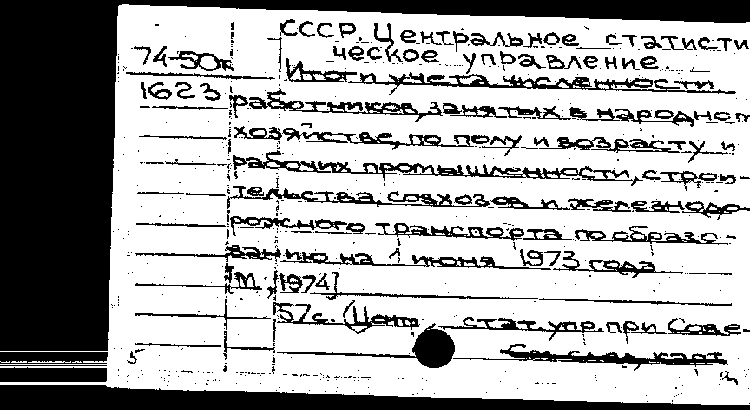 СССР. Центральное статисти
ческое управление.
74-50к
Итоги учета численности
1623
работников, занятых в народном
хозяйстве, по полу и возрасту и
рабочих промышленности, строи-
тельства, совхозов и железнодо-
рожного транспорта по образо-
ванию на 1 июня 1973 года
[М., 1974]
57с. (Центр. стат. упр. при Сове-
См. след. карт.
5